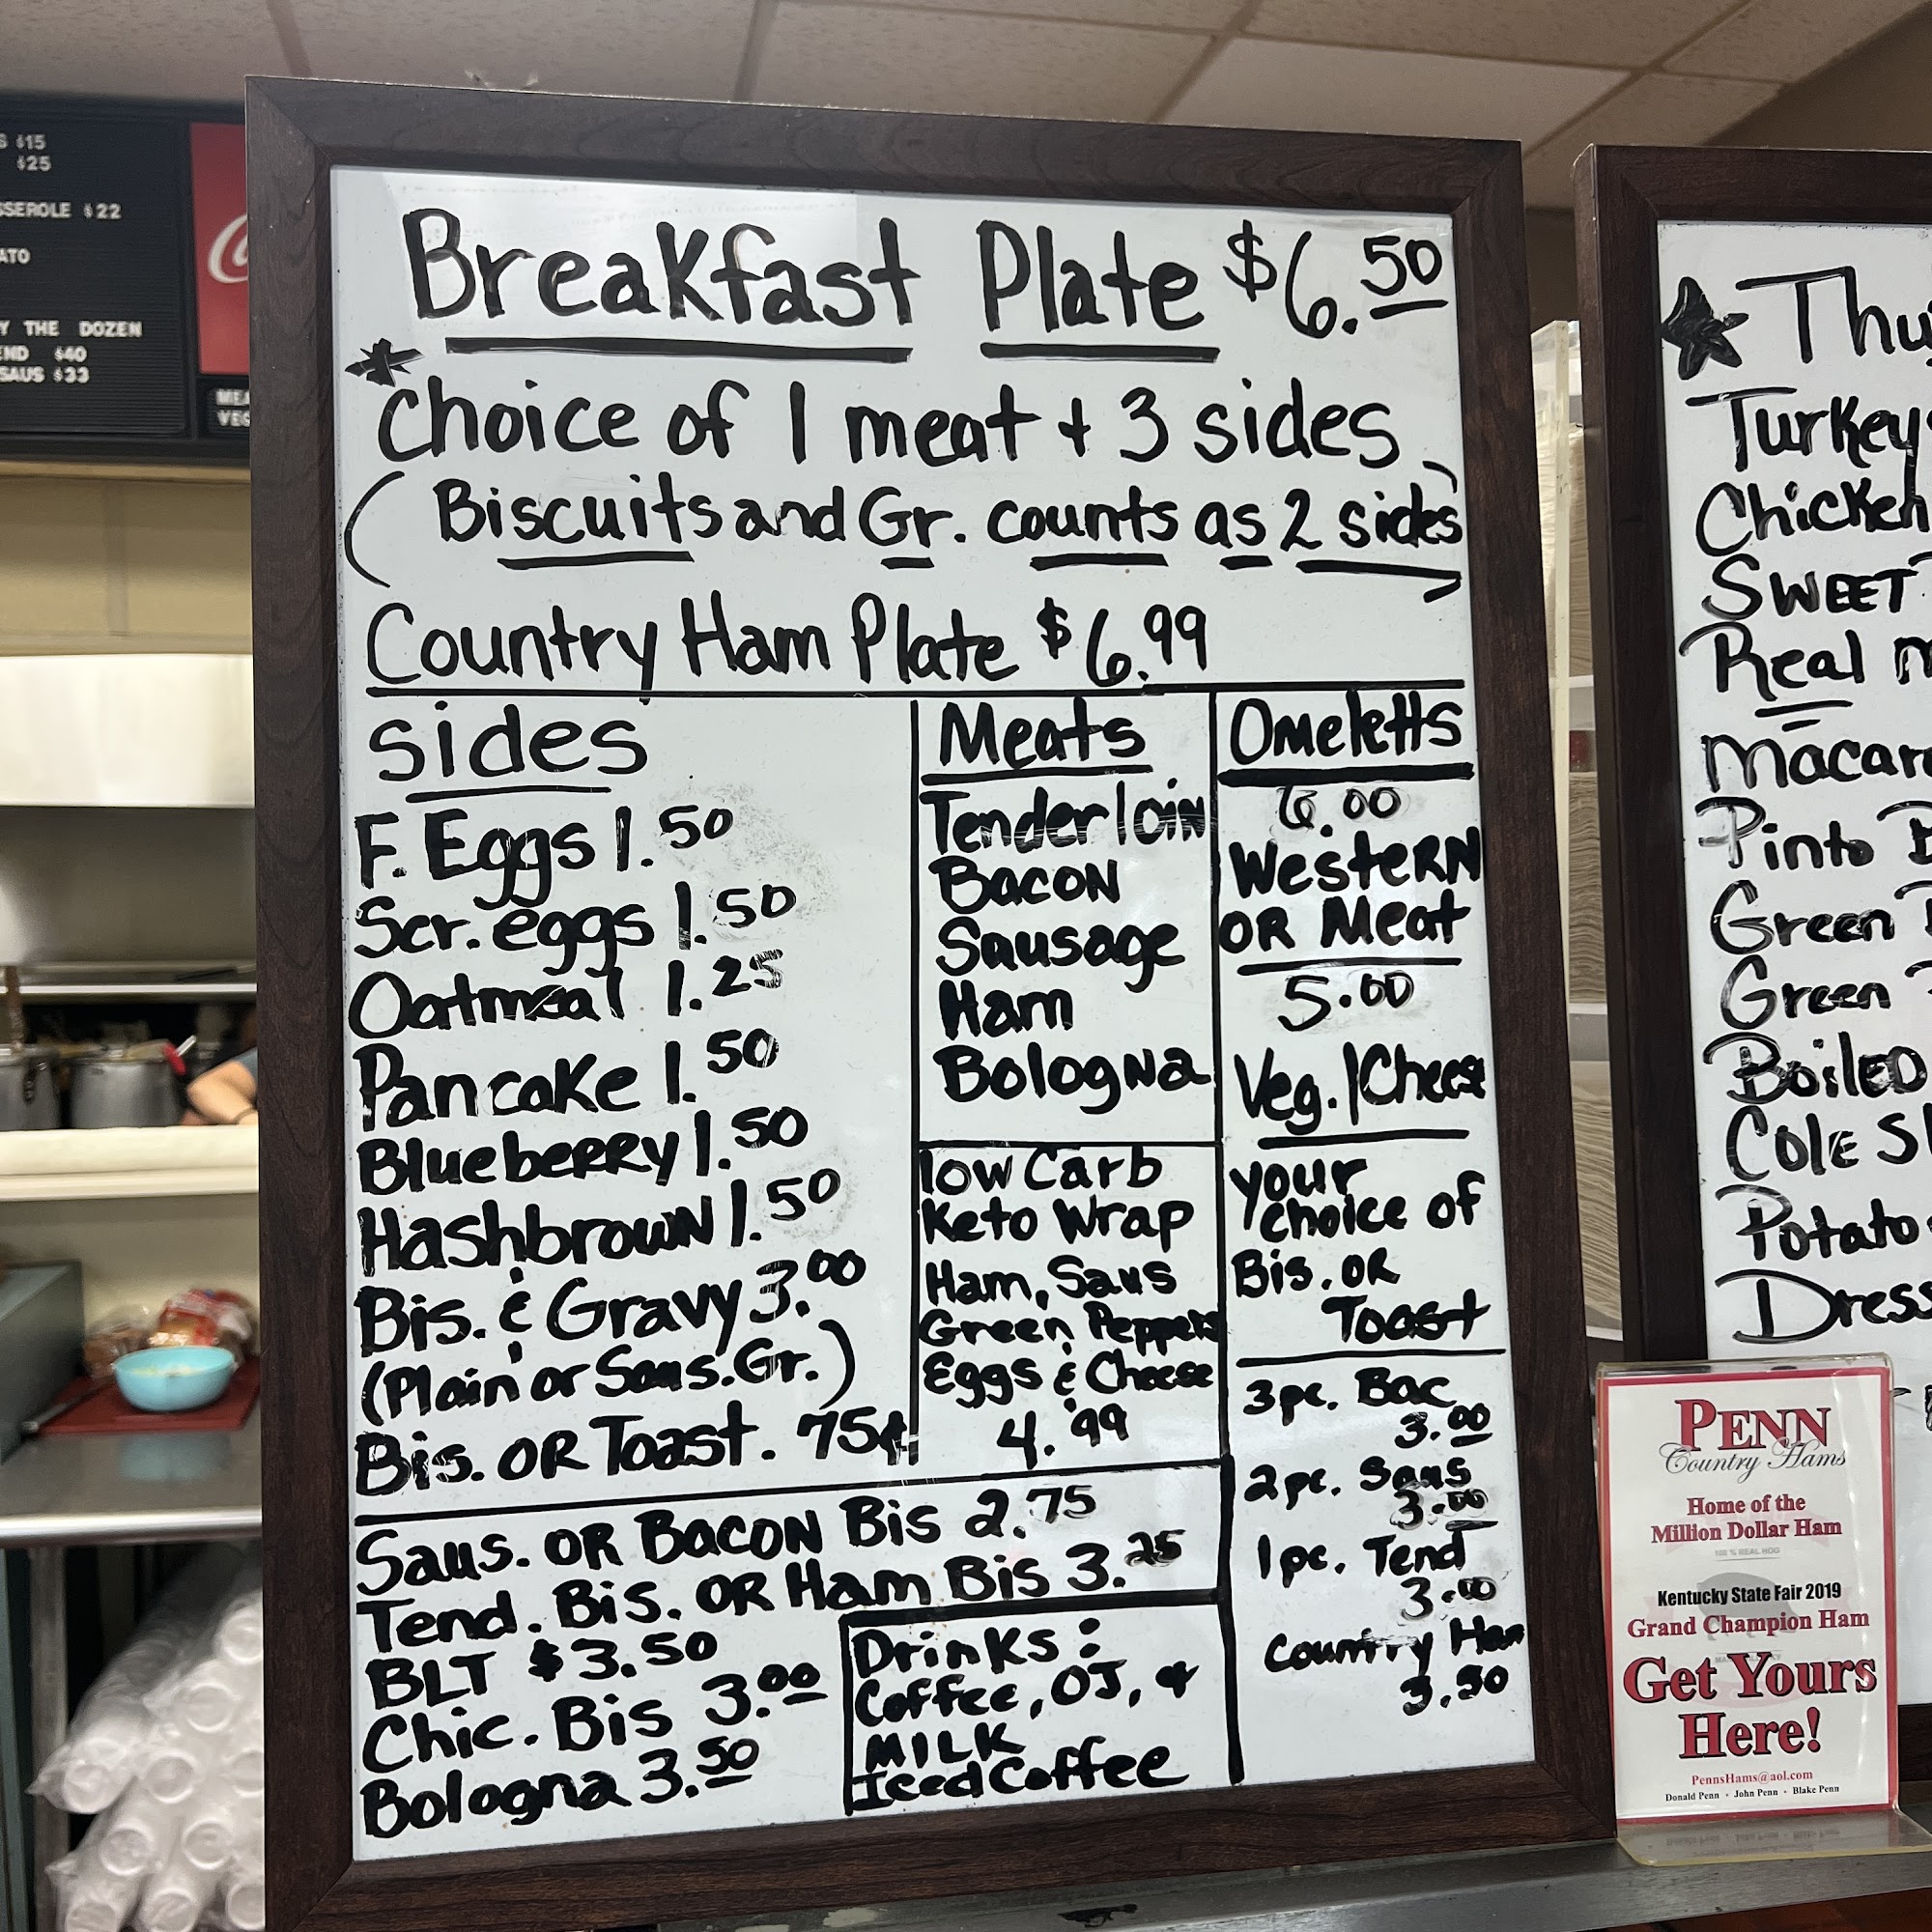 S $15
$25
SSEROLE $22
ATO
Y THE DOZEN
END $40
SAUS $33
MEA
VEG
Breakfast Plate $6.50
*
Choice of 1 meat + 3 sides
(Biscuits and Gr. counts as 2 sides)
Country Ham Plate $6.99
Sides
F. Eggs 1.50
Scr. eggs 1.50
Oatmeal 1.25
Pancake 1.50
Blueberry 1.50
Hashbrown 1.50
Bis. & Gravy 3.00
(Plain or Saus. Gr.)
Bis. OR Toast. 75¢
Meats
Tenderloin
Bacon
Sausage
Ham
Bologna
low Carb
Keto Wrap
Ham, Saus
Green Peppers
Eggs & Cheese
4.99
Omeletts
6.00
Western
OR Meat
5.00
Veg./Cheese
your
choice of
Bis. OR
Toast
3pc. Bac
3.00
2pc. Saus
3.00
1pc. Tend
3.00
Country Ham
3.50
Saus. OR Bacon Bis 2.75
Tend. Bis. OR Ham Bis 3.25
BLT $3.50
Chic. Bis 3.00
Bologna 3.50
Drinks:
Coffee, OJ, &
MILK
Iced Coffee
★ Thu
Turkey
Chicken
SWEET
Real m
Macar
Pinto B
Green
Green
Boiled
Cole Sl
Potato
Dress
PENN
Country Hams
Home of the
Million Dollar Ham
100 % REAL HOG
Kentucky State Fair 2019
Grand Champion Ham
Get Yours
Here!
PennsHams@aol.com
Donald Penn • John Penn • Blake Penn